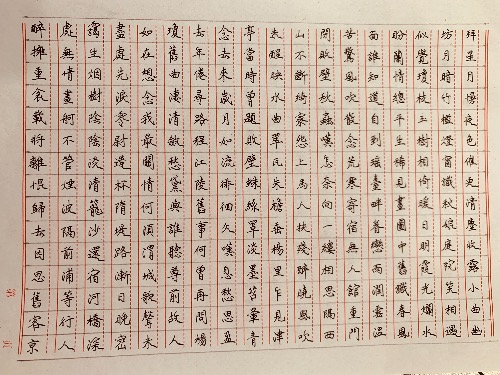 拜星月慢夜色催更清塵收露小曲幽
坊月暗竹檻燈窗識秋娘庭院笑相遇
似覺瓊枝玉樹相倚暖日明霞光爛水
盼蘭情總平生稀見畫圖中舊識春風
面誰知道自到瑤臺畔眷戀雨潤雲溫
苦驚風吹散念荒寒寄宿無人館重門
閉敗壁秋蟲嘆怎奈向一縷相思隔溪
山不斷綺寮怨上馬人扶殘醉曉風吹
未醒映水曲翠瓦朱簷垂楊裡乍見津
亭當時曾題敗壁蛛絲罩淡墨苔暈青
念去來歲月如流徘徊久嘆息愁思盈
去去倦尋路程江陵舊事何曾再問楊
瓊舊曲淒清斂愁黛與誰聽尊前故人
如在想念我最關情何須渭城歌聲未
盡處先淚零尉遲杯隋堤路漸日晚密
靄生烟樹陰陰淡月籠沙還宿河橋深
處無情畫舸不管煙波隔前浦等行人
醉擁重衾載將離恨歸去因思舊客京